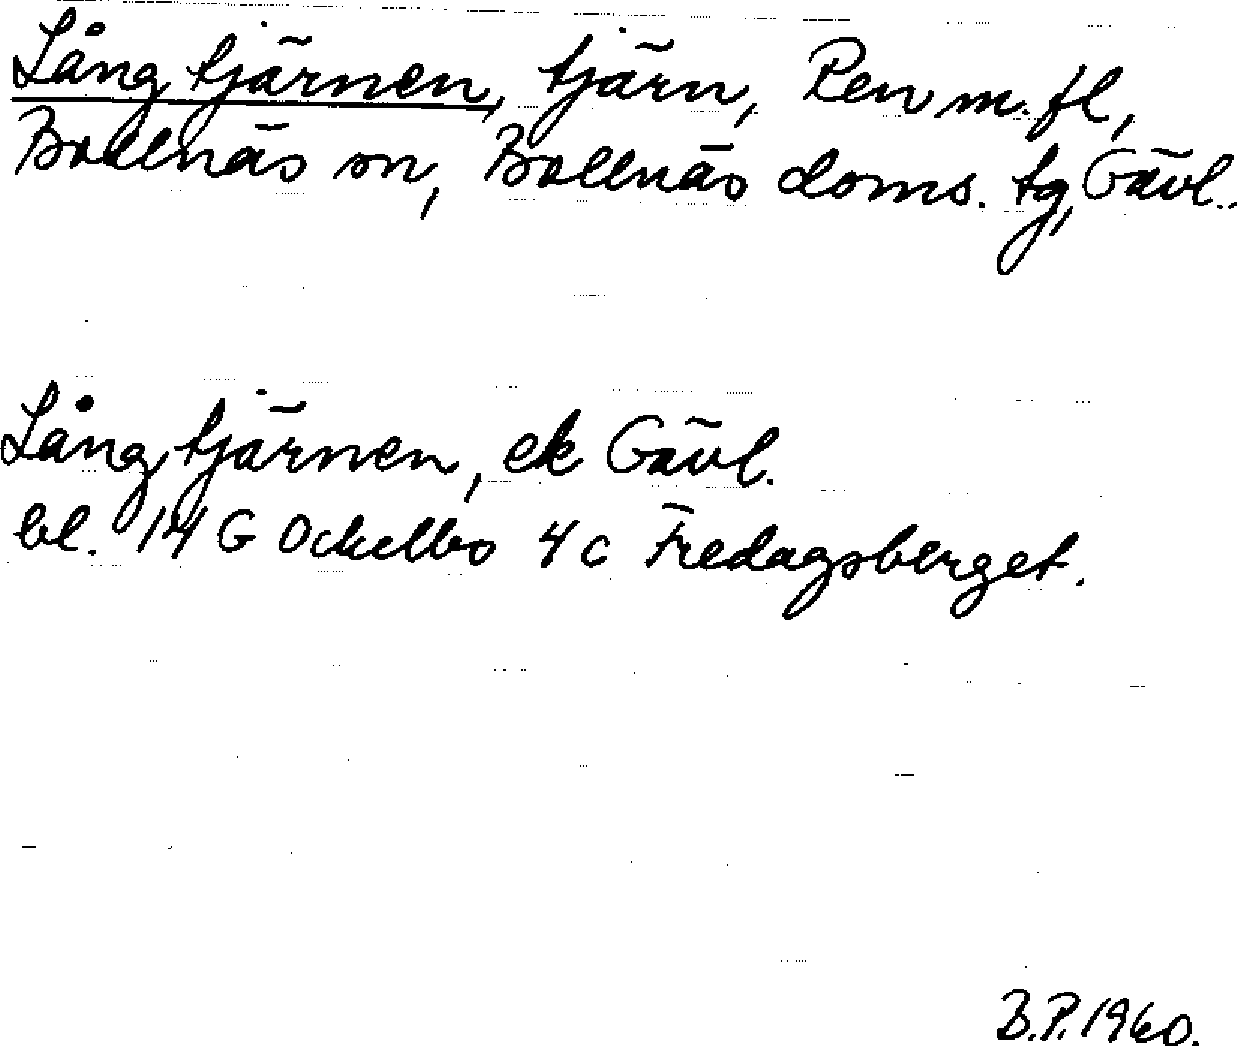 Långtjärnen, tjärn, Ren m. fl,
Bollnäs sn, Bollnäs doms. tg, Gävl..
Långtjärnen, ek Gävl.
bl. 14 G Ockelbo 4 c Fredagsberget.
B.P. 1960.